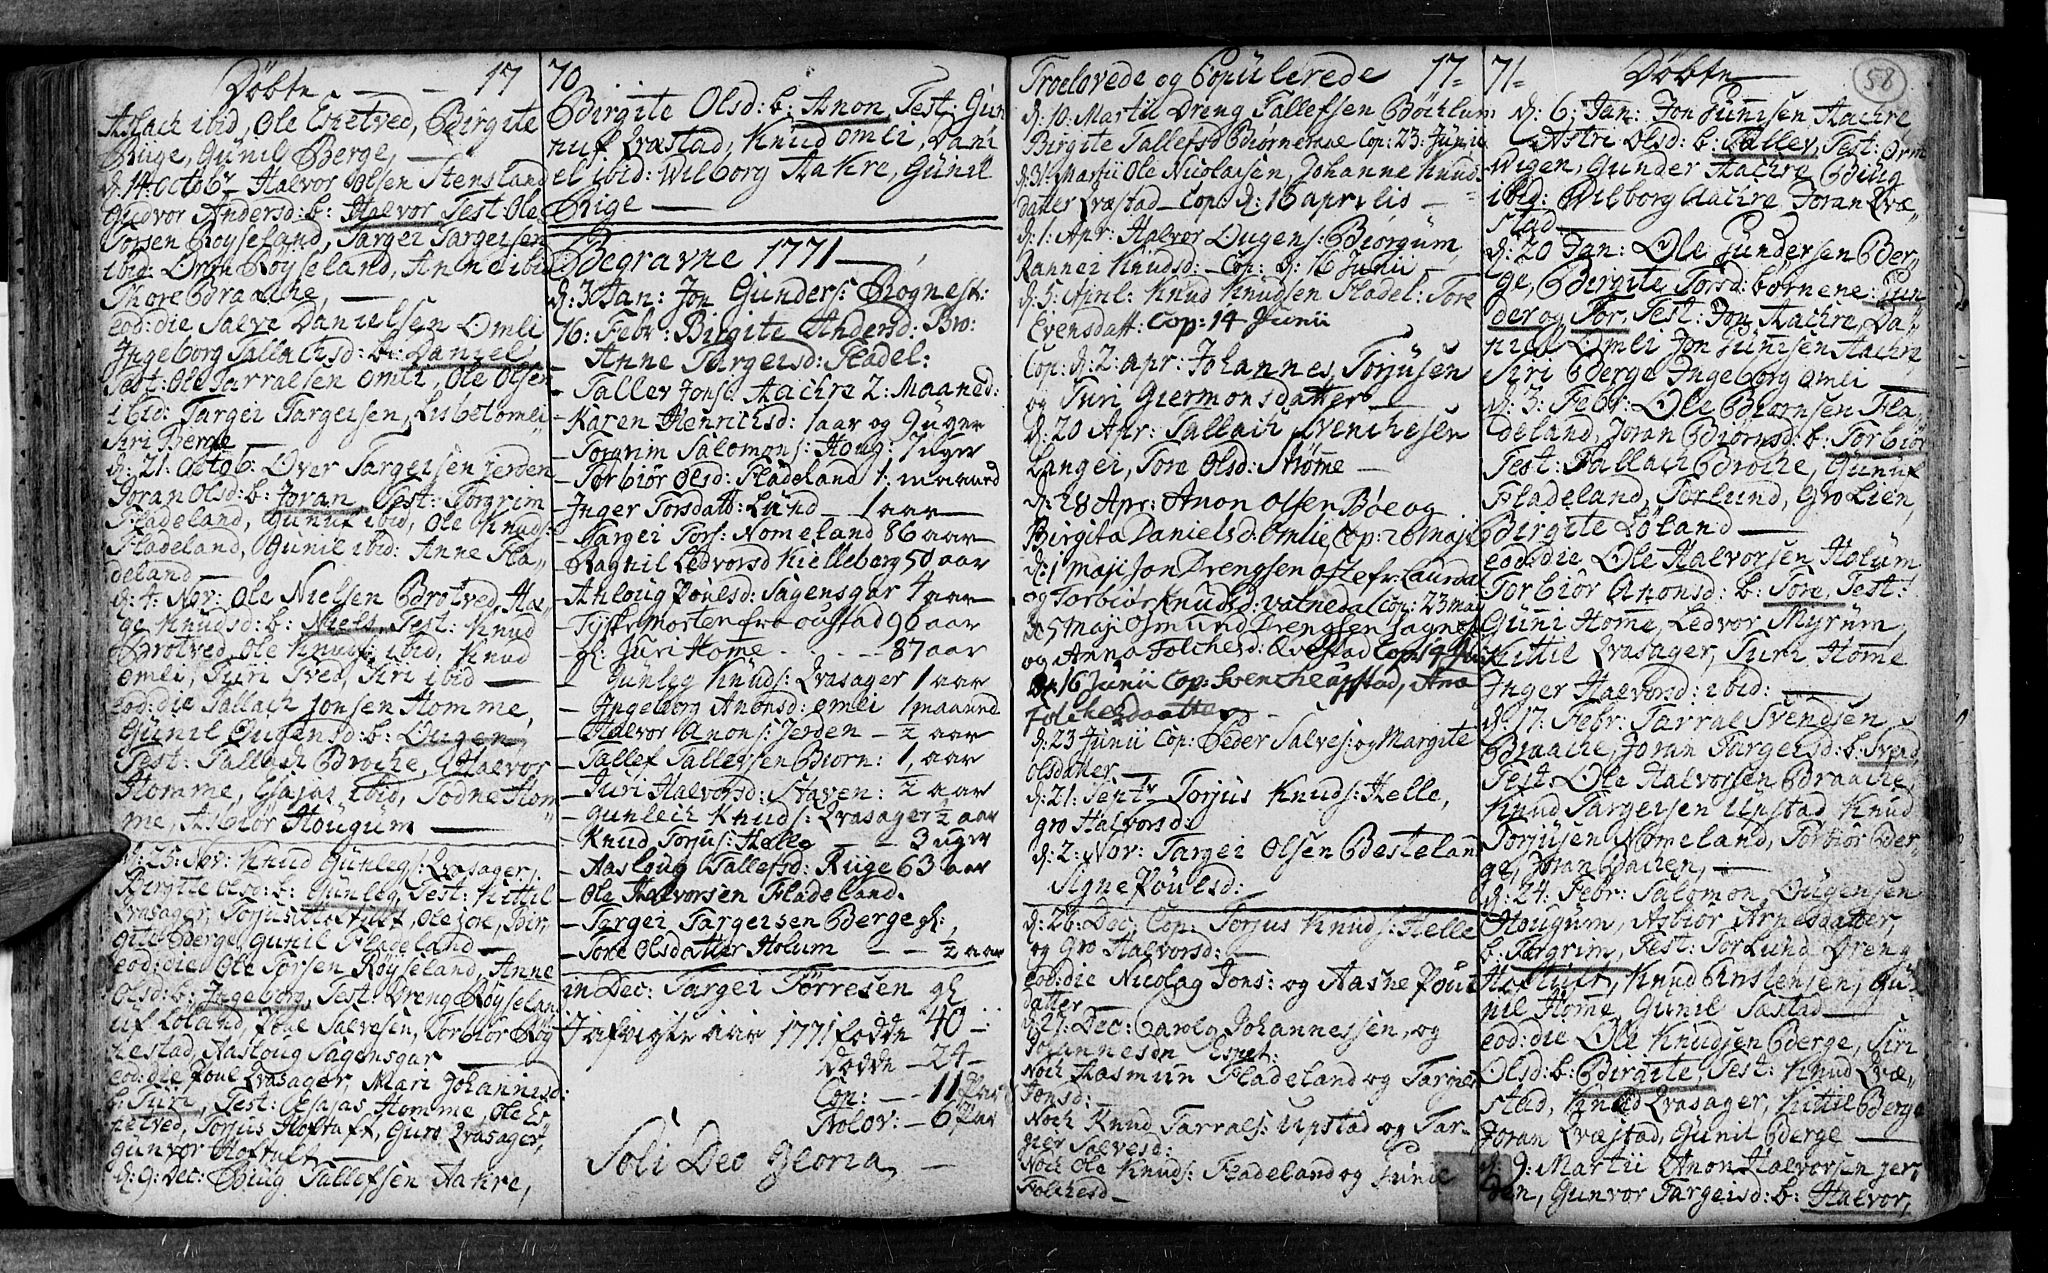 Døbte — 17
Aslach ibid, Ole Espetved, Birgite
Riige, Günil Berge, —
d: 14 octobr Halvor Olsen Stensland
Gudvor Andersd: b: Halvor Test: Ole
Torsen Röyseland, Targei Targeisen
ibid: Röyseland, Anne ibid
Thore Braache, —
eod: die Salve Danielsen Omli
Ingeborg Tallachsd: b: Daniel,
Test: Ole Tarralsen omli, Ole Olsen
ibid: Targei Targeisen, Lisbet omli
Siri Berge —
d: 21: Octob: Over Targeisen jerden
Joran Olsd: b: Joran, Test: Torgrim
Fladeland, Günuf ibid, Ole Knuds:
Fladeland, Günil ibid: Anne Fla„
deland —
d: 4: Nov: Ole Nielsen Brotved, Hæ„
ge Knudsd: b: Niels, Test: Knud
Brotved, Ole Knuds: ibid, Knud
omli, Tjiri Tved, Siri ibid —
eod: die Tallach Jonsen Homme,
Günil Ougensd: b: Ougen,
Test: Tallach Broche, Halvor
Homme, Esajas ibid, Todne Hom„
me, Asbiör Hougüm —
d: 25: Nov: Knud Günlegs: Qvasager,
Birgite olsd: b: Günleg, Test: Kittil
Qvasager, Torjus Hoftuft, Ole Bir„
gite Berge, Gunil Fladeland —
eod: die Ole Torsen Röyseland, Anne
Olsd: b: Ingeborg, Test: Dreng Röyselan
uf Loland, Poul Salvesen, Torbiör Røg
nestad, Aasloug Sagensgar —
eod: die Poul Qvasager, Mari Johannisd:
b: Turi, Test: Esajas Homme, Ole Es„
petved, Torjus Hoftuft, Guro Qvasager,
Günvor Hoftuft —
d: 9: Dec: Biug Tallefsen Aakre,
70. —
Birgite Olsd: b: Anon Test: Gun
nuf Qvæstad, Knud omli, Dani
el ibid: Wilborg Aakre, Günil
Riige —
Begravne 1771 —
d: 3 Jan: Jon Gunders: Rognest:
16: Febr: Birgite Andersd: Bro:
— Anne Targeisd: Fladel:
— Tallev Jons: Aachre 2: Maaned:
— Karen Henrichsd: 1 aar og 9 uger
— Torgrim Salomons: Houg: 7 uger
— Torbiör Olsd: Fladeland 1: maaned
— Inger Torsdatt: Lund — 1 aar —
— Targei Tors: Nomeland 86 aar —
— Ragnil Ledvorsd Kielleberg 50 aar
— Ahloug Pöuesd: Sagensgar 4 aar —
— Tyske Morten fra oustad 96 aar
— gl: Turi Home - - - - 87 aar
— Günleg Knuds: Qvasager 1 aar
— Ingeborg Anonsd: omli 1 maaned
— Halvor Anons: Jerden — ½ aar
— Tallef Tallegsen Biorn: 1, aar
— Turi Halvorsd: Staven: ½ aar
— Gunlech Knuds: Qvasager ½ aar
— Knud Torjus: Helle — — 3 uger
— Aasloug Tallefsd: Riige 63 aar
— Ole Halvorsen Fladeland.
— Targei Targeisen Berge gl:,
— Tore Olsdatter Holum — — ½ aar
in Dec: Targei Törresen gl
I afvigte aar 1771 fødde 40 —:
dødde — 24 —
Cop: — - 11 Par
Trolov: — 6 Par
Soli Deo Gloria, —
Troelovede og Copulerede 17=
d: 10. Martii Dreng Tallefsen Böchlum
Birgite Tallefsd Biörnemoe Cop: 23: Junii
d: 31: Martii Ole Nicolaisen, Johanne Knud„
datter Qvæstad — Cop: d: 16 aprilis —
d: 1: Apr: Halvor Ougens: Biorgüm
Rannei Knudsd: — Cop: d: 16 Junii —
d: 5: April: Knud Knudsen Fladel: Tore
Evensdatt: Cop: 14 Junii
Cop: d: 2: apr: Johannes Torjüsen
og Turi Giermonsdatter —
d: 20 Apr: Tallach Svenchesen
Langei, Tore Olsd: Strøme —
d: 28 Apr: Anon Olsen Böe og
Birgita Danielsd: Omlie, Cop: 26 Maji
d: 1 Maji Jon Drengsen ofte fr: Laurdal
og Torbiör Knudsd: Vatnedal Cop: 23 may
d: 5 Maji Osmund Drengsen Sagnes
og Anna Folchesd: Qvestad Cop: 14 Jun
d: 16 Junii Cop: Svenche upstad, Ana
Folchesdaatter —
d: 23 Junii Cop: Peder Salves: og Margite
olsdatter —
d: 21: Septr Torjus Knuds: Helle,
gro Halvorsd:
d: 2: Nov: Targei Olsen Besteland
Signe Pöulsd: —
d: 26: Dec: Cop: Torjus Knuds: Helle
og Gro Halvorsd: —
eod: die Nicolag Jons: og Aashe Pouls
datter —
d: 27: Dec: Carola Johannessen, og
Johannesen Espet:
Noch Aasmun Fladeland og Targier
Jonsd: —
Noch Knud Tarrals: Upstad og Tar„
gier Salvesd:
Noch Ole Knuds: Fladeland og Gunil
Folchesd —
71 — Døbte — 58
d: 6: Jan: Jon Gunnisen Aachre
Astri Olsd: b: Tallev, Test: Orm
Wigen, Gunder Aachre Biug
ibid: Wilborg Aachre Joran Qvæ„
stad —
d: 20 Jan: Ole Gundersen Ber„
ge, Birgite Torsd: børnene: Gun
der og Tor, Test: Jon Aachre, Da„
niel Omli Jon Gunnisen Aachre
Siri Berge Ingeborg omli —
d: 3: Febr: Ole Biörnsen Fla„
deland, Joran Biörnsd: b: Torbiör
Test: Tallach Broche, Günuf
Fladeland, Torlund, Gro Lien,
Birgite Löland —
eod: die, Ole Halvorsen Holüm
Torbiör Anonsd: b: Tore, Test:
Güni Home, Ledvor Myrüm
Kittil Qvasager, Turi Home
Inger Halvorsd: ibid: —
d: 17: Febr: Tarral Svendsen
Braache, Joran Targeisd: b: Svend,
Test: Ole Halvorsen Braache
Knud Targeisen Upstad Knud
Torjüsen Nomeland, Torbiör Ber„
ge, Joran Bachen, —
d: 24: Febr: Salomon Ougensen
Hougum, Asbiör Arnesdatter,
b: Torgrim, Test: Torlund Dreng
Hoftuft, Knud Knstensen, Gü„
nil Home, Gunil Sastad —
eod: die Ole Knudsen Berge, Siri
Olsd: b: Birgite Test: Knud Qvæ„
stad, Knud Qvasager, Kittil Berge
Joran Qvæstad, Gunil Berge —
d: 9: Martii Anon Halvorsen jer„
den, Gunvor Targeisd: b: Halvor,